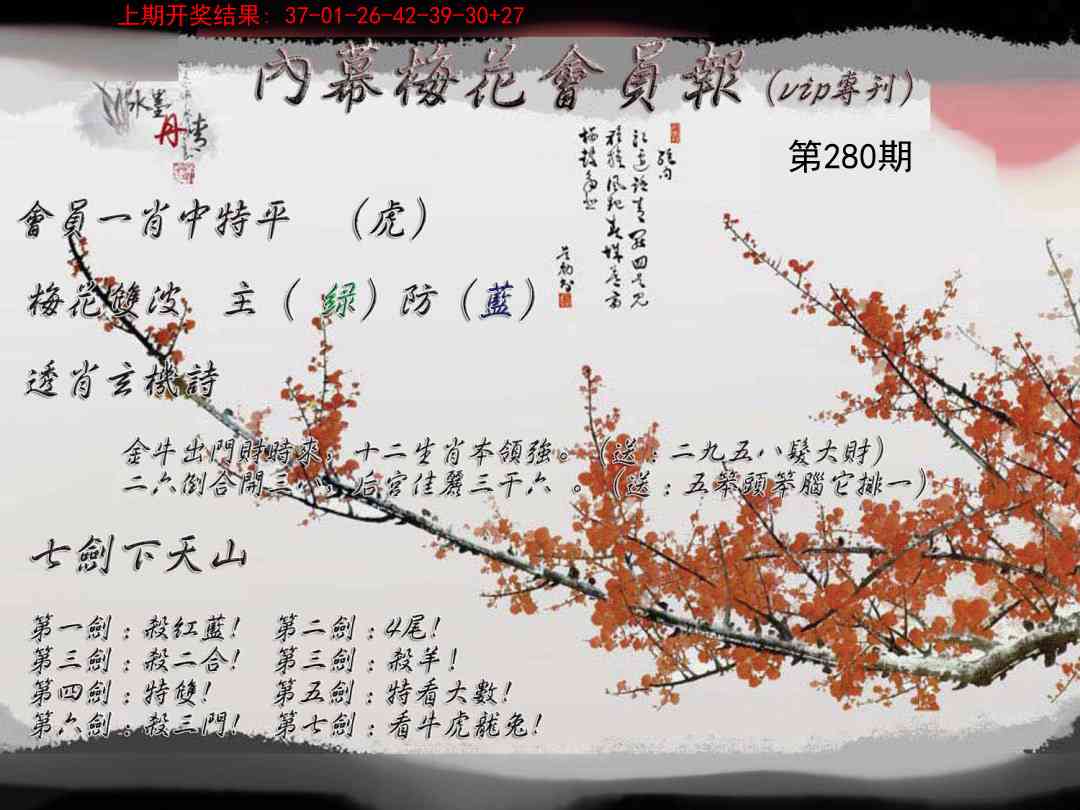 上期开奖结果: 37-01-26-42-39-30+27
內幕梅花會員報(vip專刊)
水墨
丹青
第280期
會員一肖中特平 （虎）
梅花雙波 主（ 绿）防（藍）
透肖玄機詩
金牛出門財時來，十二生肖本領強。（送：二九五八髮大財）
二六倒合開三小，后宮佳麗三千六 。（送：五笨頭笨腦它排一）
七劍下天山
第一劍：殺紅藍! 第二劍：4尾!
第三劍：殺二合! 第三劍：殺羊!
第四劍：特雙! 第五劍：特看大數!
第六劍：殺三門! 第七劍：看牛虎龍兔!